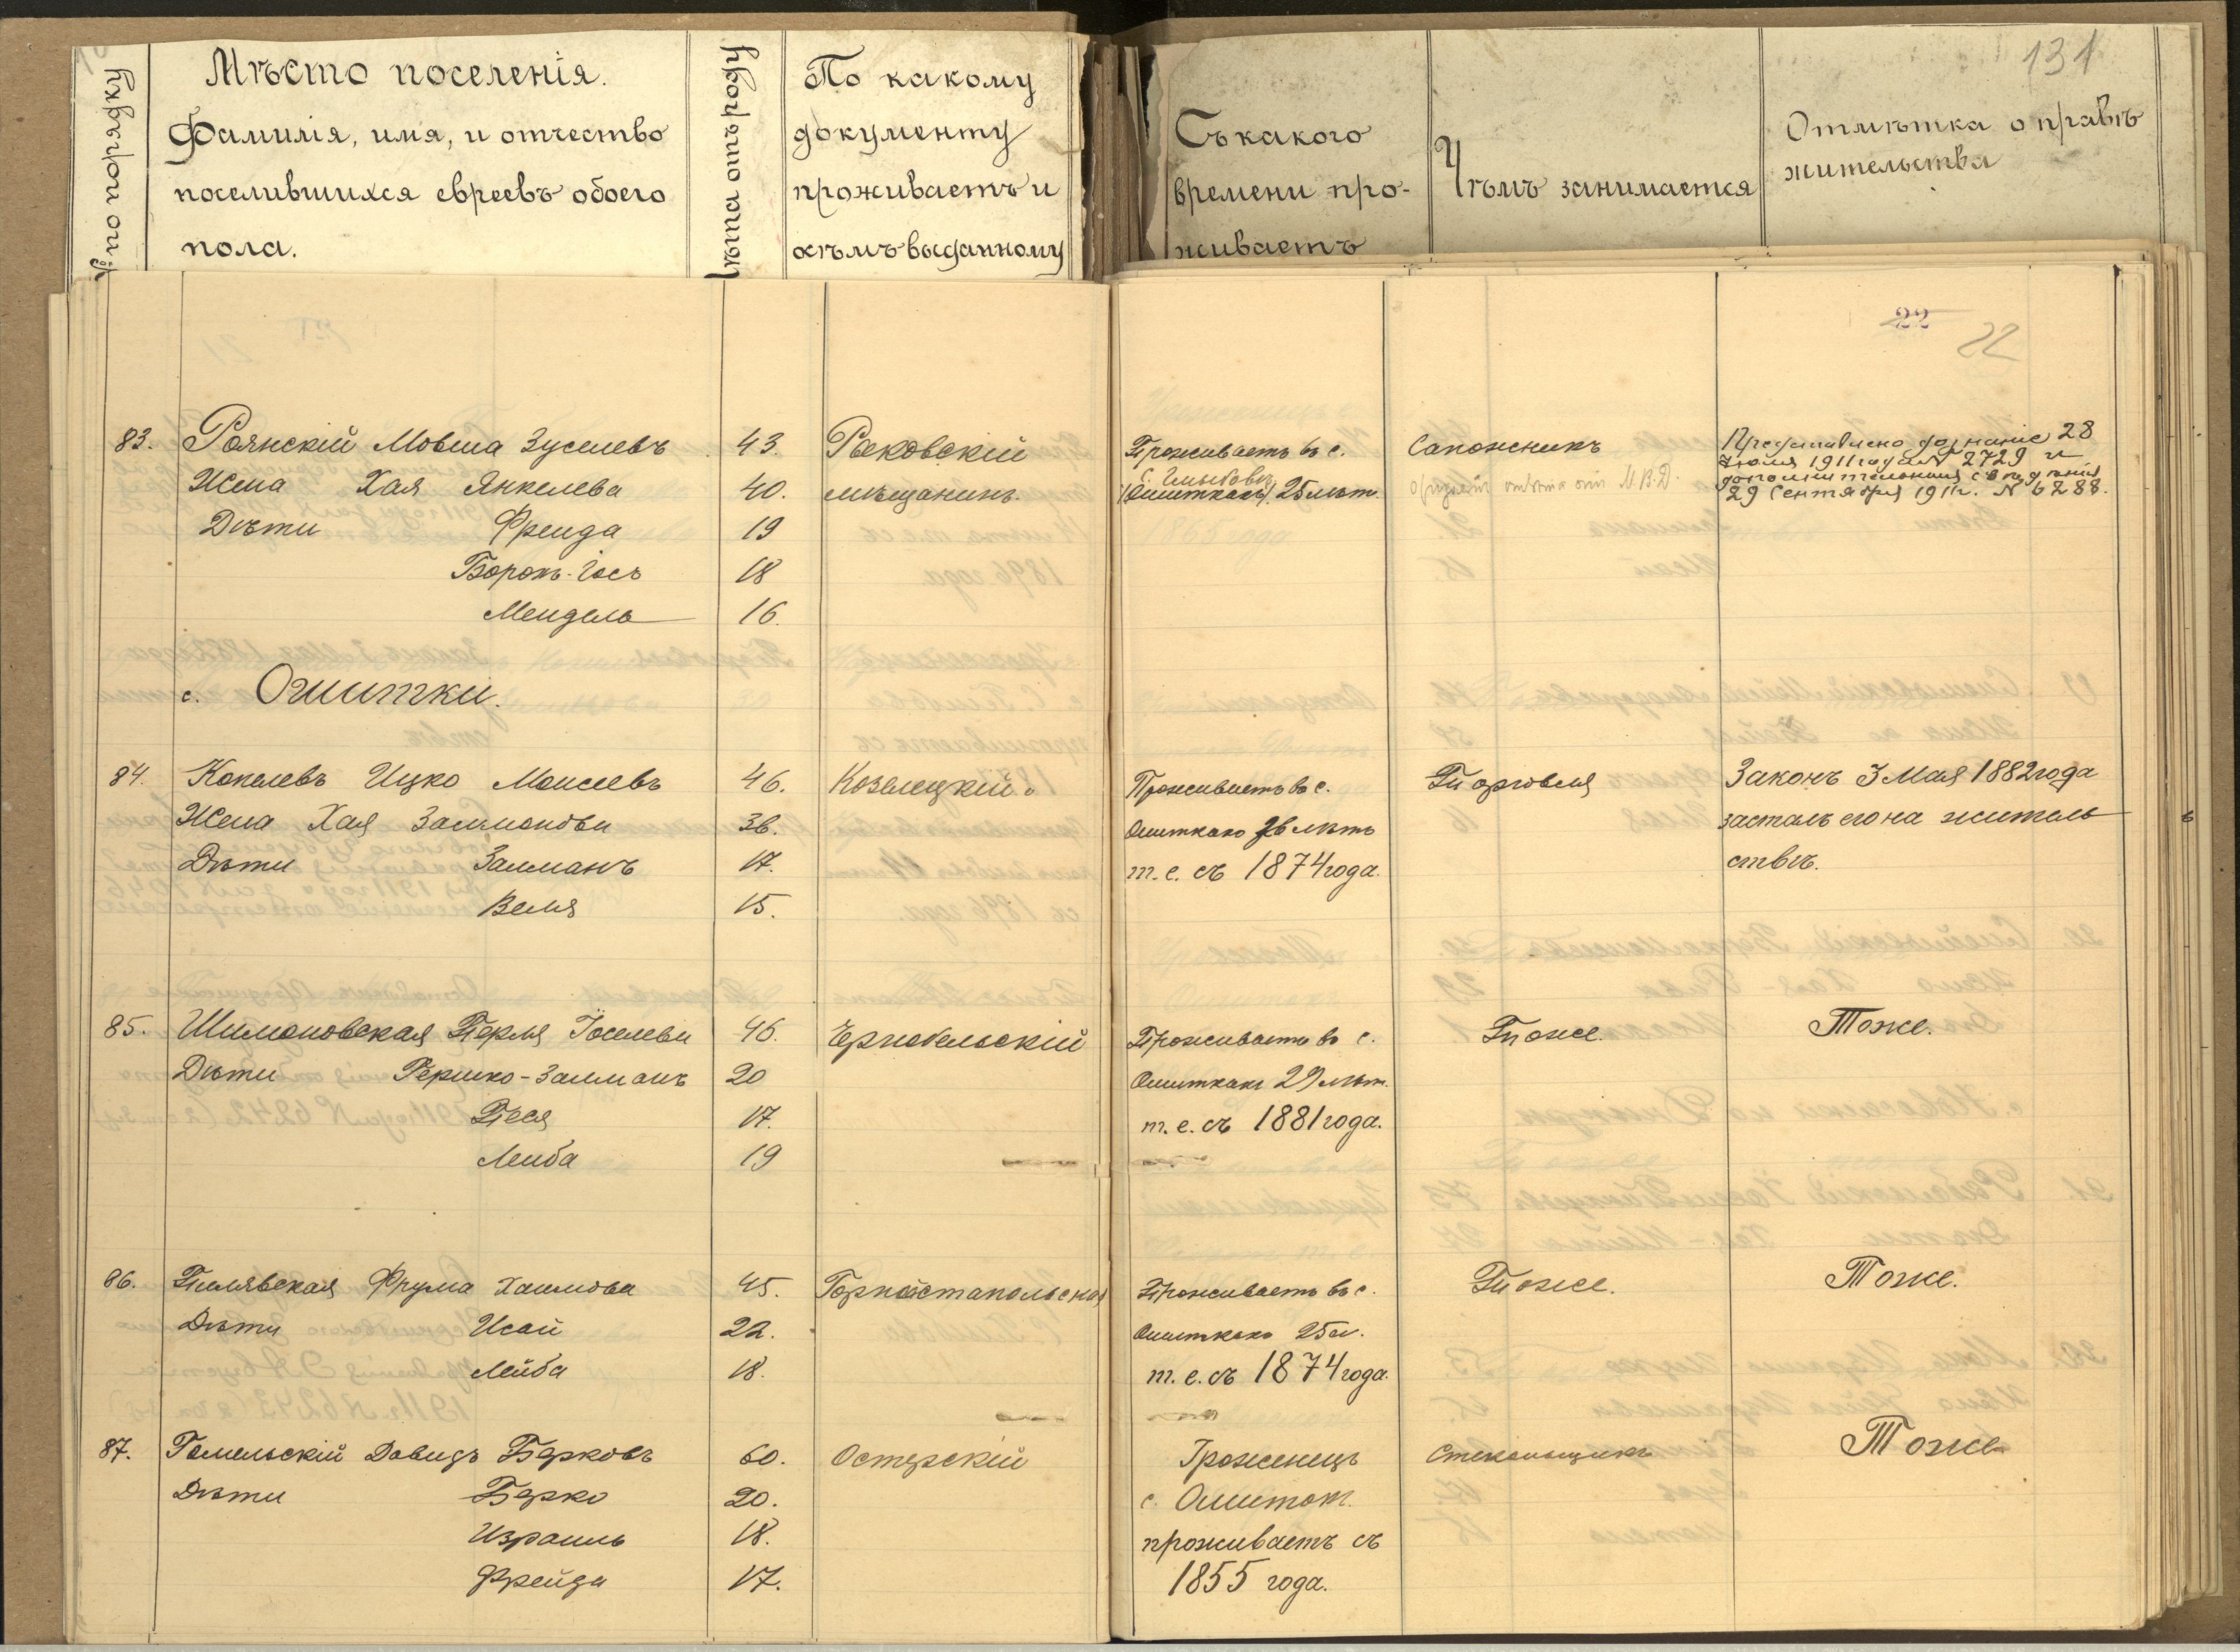 131
№ по порядку
Мѣсто поселенія.
Фамилія, имя, и отчество
поселившихся евреевъ обоего
пола.
Лѣта отъ роду
По какому
документу
проживаетъ и
кѣмъ выданному
Съ какого
времени про-
живаетъ
Чѣмъ занимается
Отмѣтка о правѣ
жительства
22
22
83. Роянскій Мовша Зуселевъ 43. Ржковскій Проживаетъ въ с. Сапожникъ Представлено дознаніе 28
Іюля 1911 года № 2729 и
Жена Хая Янкелева 40. мѣщанинъ. (Ошиткахъ) 25 лѣтъ. отвѣта отъ М.В.Д. дополнительныя свѣдѣнія
29 Сентября 1911г. № 6288.
Дѣти Фрейда 19
Борохъ-Іось 18
Мендель 16.
с. Ошитки.
84. Копелевъ Ицко Моисеевъ 46. Козелецкій. Проживаетъ въ с. Торговля Законъ 3 Мая 1882 года
Жена Хая Залмонова 36. Ошиткахъ 36 лѣтъ засталъ его на житель
Дѣти Залманъ 17. т.е. съ 1874 года. ствѣ.
Веля 15.
85. Шимоновская Перля Іоселева 46. Чернобыльскій Проживаетъ въ с. Тоже. Тоже.
Дѣти Гершко-Залманъ 20 Ошиткахъ 29 лѣт.
Песя 17. т.е. съ 1881 года.
Лейба 19
86. Пилявская Фрума Хаимова 45. Горностапольская Проживаетъ въ с. Тоже. Тоже.
Дѣти Исай 22. Ошиткахъ 25 л.
Лейба 18. т.е. съ 1874 года.
87. Гомельскій Давидъ Берковъ 60. Остерскій Уроженецъ Стекольщикъ Тоже
Дѣти Берко 20. с. Ошитокъ.
Израиль 18. проживаетъ съ
Фрейда 17. 1855 года.